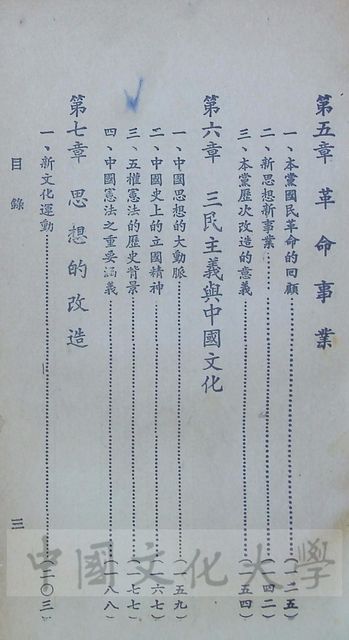 第五章 革命事業
一、本黨國民革命的回顧……(一二五)
二、新思想新事業……(一四二)
三、本黨歷次改造的意義……(一五四)
第六章 三民主義與中國文化
一、中國思想的大動脈……(一五九)
二、中國史上的立國精神……(一六七)
三、五權憲法的歷史背景……(一七七)
四、中國憲法之重要涵義……(一八八)
第七章 思想的改造
一、新文化運動……(二〇三)
目錄
三
中國文化大學